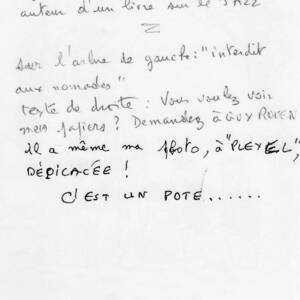 auteur d'un livre sur le JAZZ
sur l'arbre de gauche : "interdit
aux nomades"
texte de droite : Vous voulez voir
mes papiers ? Demandez à GUY
il a même ma photo, à "PLEYEL",
DÉDICACÉE !
C'EST UN POTE.......